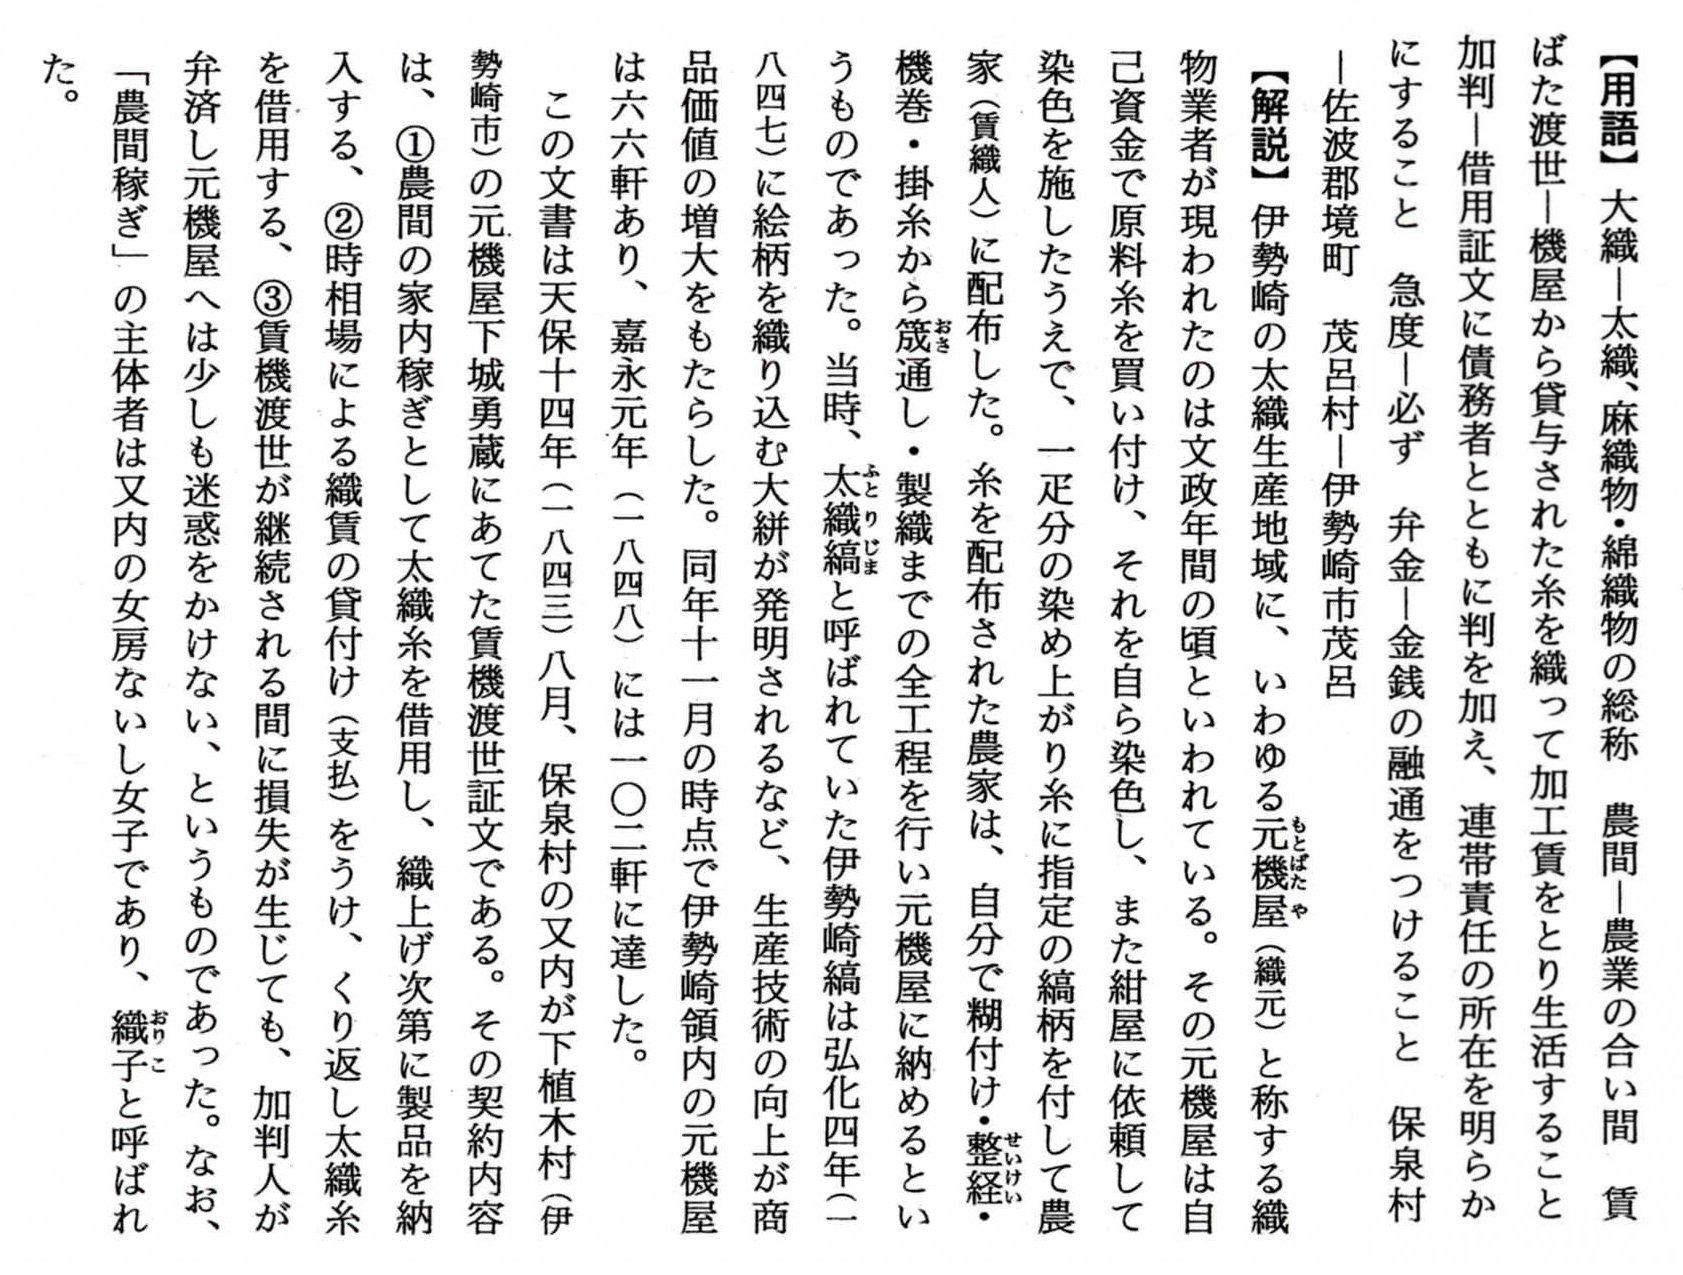 【用語】大織―太織、麻織物・綿織物の総称　農間―農業の合い間　賃
ばた渡世―機屋から貸与された糸を織って加工賃をとり生活すること
加判―借用証文に債務者とともに判を加え、連帯責任の所在を明らか
にすること　急度―必ず　弁金―金銭の融通をつけること　保泉村
―佐波郡境町　茂呂村―伊勢崎市茂呂
【解説】伊勢崎の太織生産地域に、いわゆる元機屋（織元）と称する織
物業者が現われたのは文政年間の頃といわれている。その元機屋は自
己資金で原料糸を買い付け、それを自ら染色し、また紺屋に依頼して
染色を施したうえで、一疋分の染め上がり糸に指定の縞柄を付して農
家（賃織人）に配布した。糸を配布された農家は、自分で糊付け・整経・
機巻・掛糸から筬通し・製織までの全工程を行い元機屋に納めるとい
うものであった。当時、太織縞と呼ばれていた伊勢崎縞は弘化四年（一
八四七）に絵柄を織り込む大絣が発明されるなど、生産技術の向上が商
品価値の増大をもたらした。同年十一月の時点で伊勢崎領内の元機屋
は六六軒あり、嘉永元年（一八四八）には一〇二軒に達した。
この文書は天保十四年（一八四三）八月、保泉村の又内が下植木村（伊
勢崎市）の元機屋下城勇蔵にあてた賃機渡世証文である。その契約内容
は、①農間の家内稼ぎとして太織糸を借用し、織上げ次第に製品を納
入する、②時相場による織賃の貸付け（支払）をうけ、くり返し太織糸
を借用する、③賃機渡世が継続される間に損失が生じても、加判人が
弁済し元機屋へは少しも迷惑をかけない、というものであった。なお、
「農間稼ぎ」の主体者は又内の女房ないし女子であり、織子と呼ばれ
た。